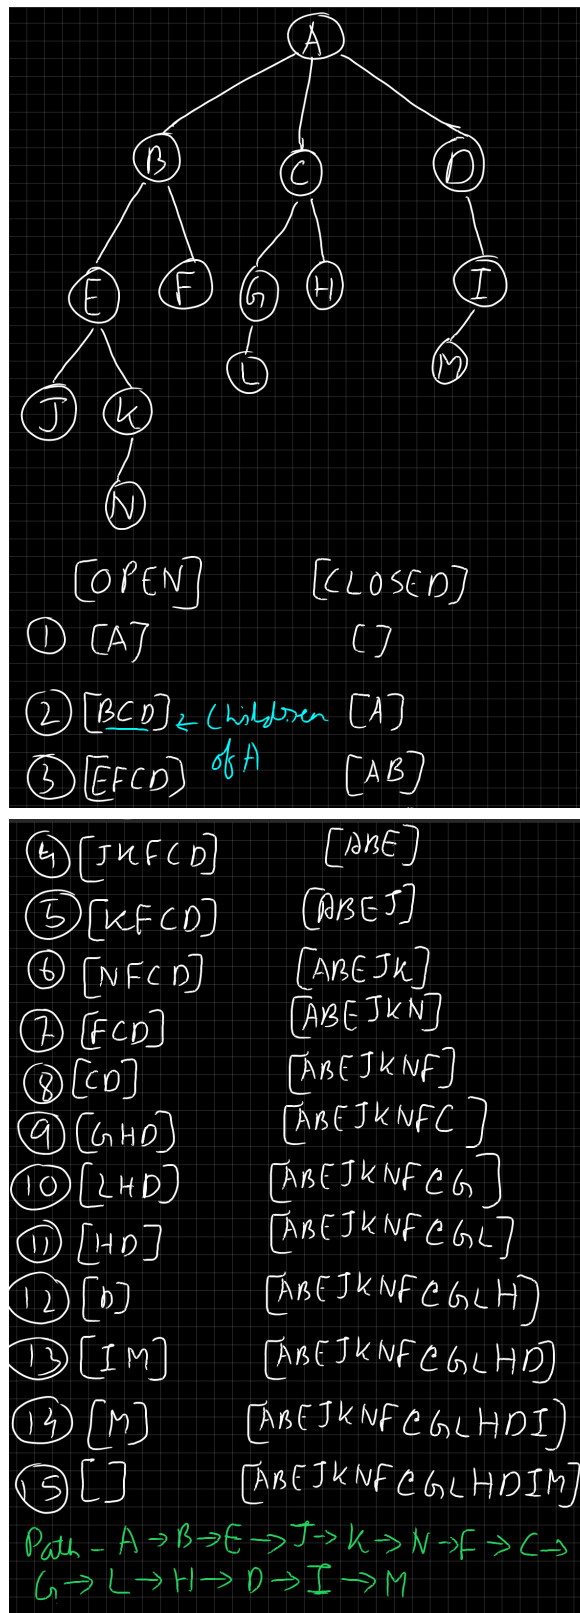 A
B C D
E F G H I
L M
J K
N
[OPEN] [CLOSED]
① [A] []
② [BCD] ← Children [A]
of A
③ [EFCD] [AB]
④ [JKFCD] [ABE]
⑤ [KFCD] [ABEJ]
⑥ [NFCD] [ABEJK]
⑦ [FCD] [ABEJKN]
⑧ [CD] [ABEJKNF]
⑨ [GHD] [ABEJKNFC]
⑩ [LHD] [ABEJKNFCG]
⑪ [HD] [ABEJKNFCGL]
⑫ [D] [ABEJKNFCGLH]
⑬ [IM] [ABEJKNFCGLHD]
⑭ [M] [ABEJKNFCGLHDI]
⑮ [] [ABEJKNFCGLHDIM]
Path - A → B → E → J → K → N → F → C →
G → L → H → D → I → M